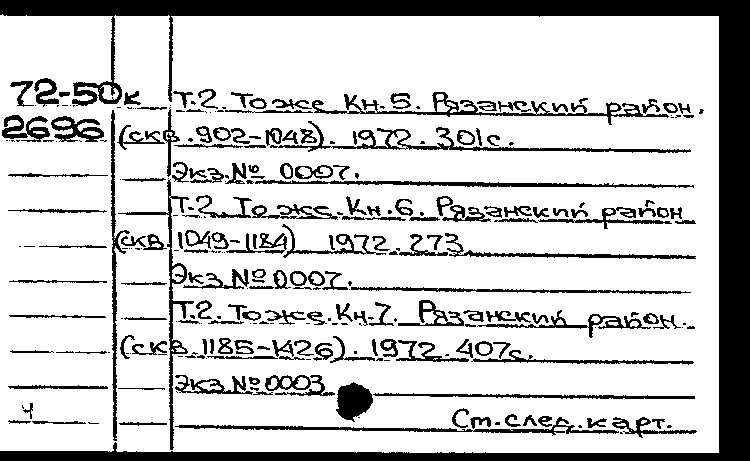 72-50к Т.2. То же Кн.5. Рязанский район.
2696 (скв.902-1048). 1972. 301с.
Экз.№ 0007.
Т.2. То же. Кн.6. Рязанский район
(скв. 1049-1184) 1972. 273
Экз.№ 0007.
Т.2. То же. Кн.7. Рязанский район.
(скв. 1185-1426). 1972. 407с.
Экз.№ 0003
4 Ст. след. карт.